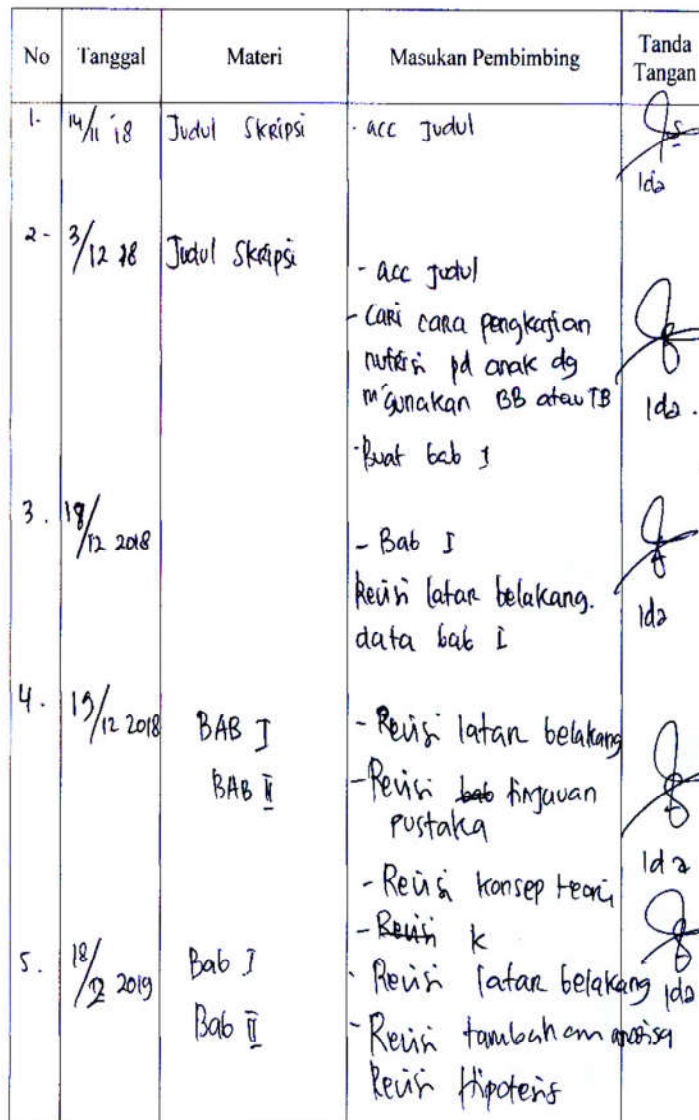 No Tanggal Materi Masukan Pembimbing Tanda Tangan
1. 14/11 18 Judul Skripsi - acc Judul
Ida
2- 3/12 18 Judul Skripsi
- acc Judul
- Cari cara pengkajian
nutrisi pd anak dg
m'gunakan BB atau TB
Ida.
- Buat bab I
3. 18/12 2018
- Bab I
Revisi latar belakang.
Ida
data bab I
4. 19/12 2018 BAB I - Revisi latar belakang
BAB II - Revisi bab tinjauan
pustaka
Ida
- Revisi konsep teori
- Revisi k
5. 18/ 2019 Bab I - Revisi latar belakang Ida
Bab II - Revisi tambahan
Revisi Hipotesis